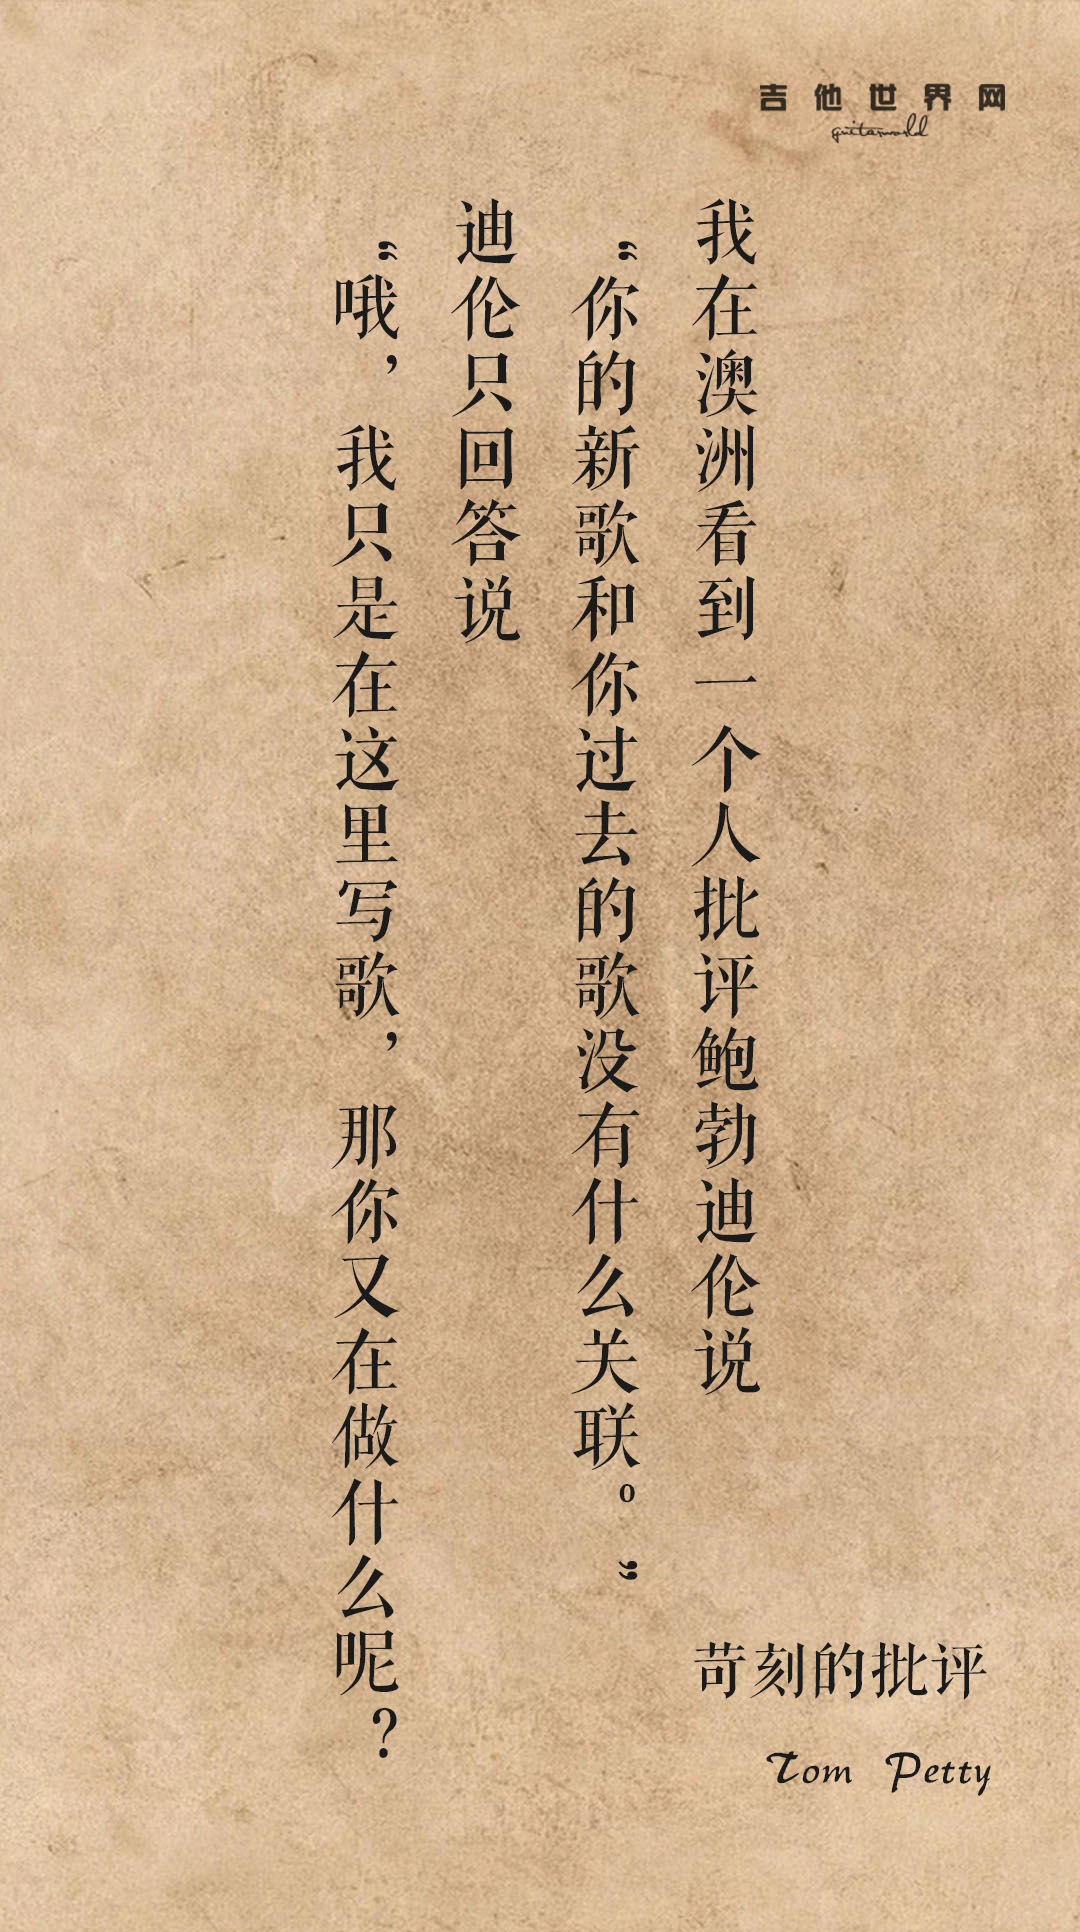 吉他世界网
guitarworld
我在澳洲看到一个人批评鲍勃迪伦说
“你的新歌和你过去的歌没有什么关联。”
迪伦只回答说
“哦，我只是在这里写歌，那你又在做什么呢？
苛刻的批评
Tom Petty